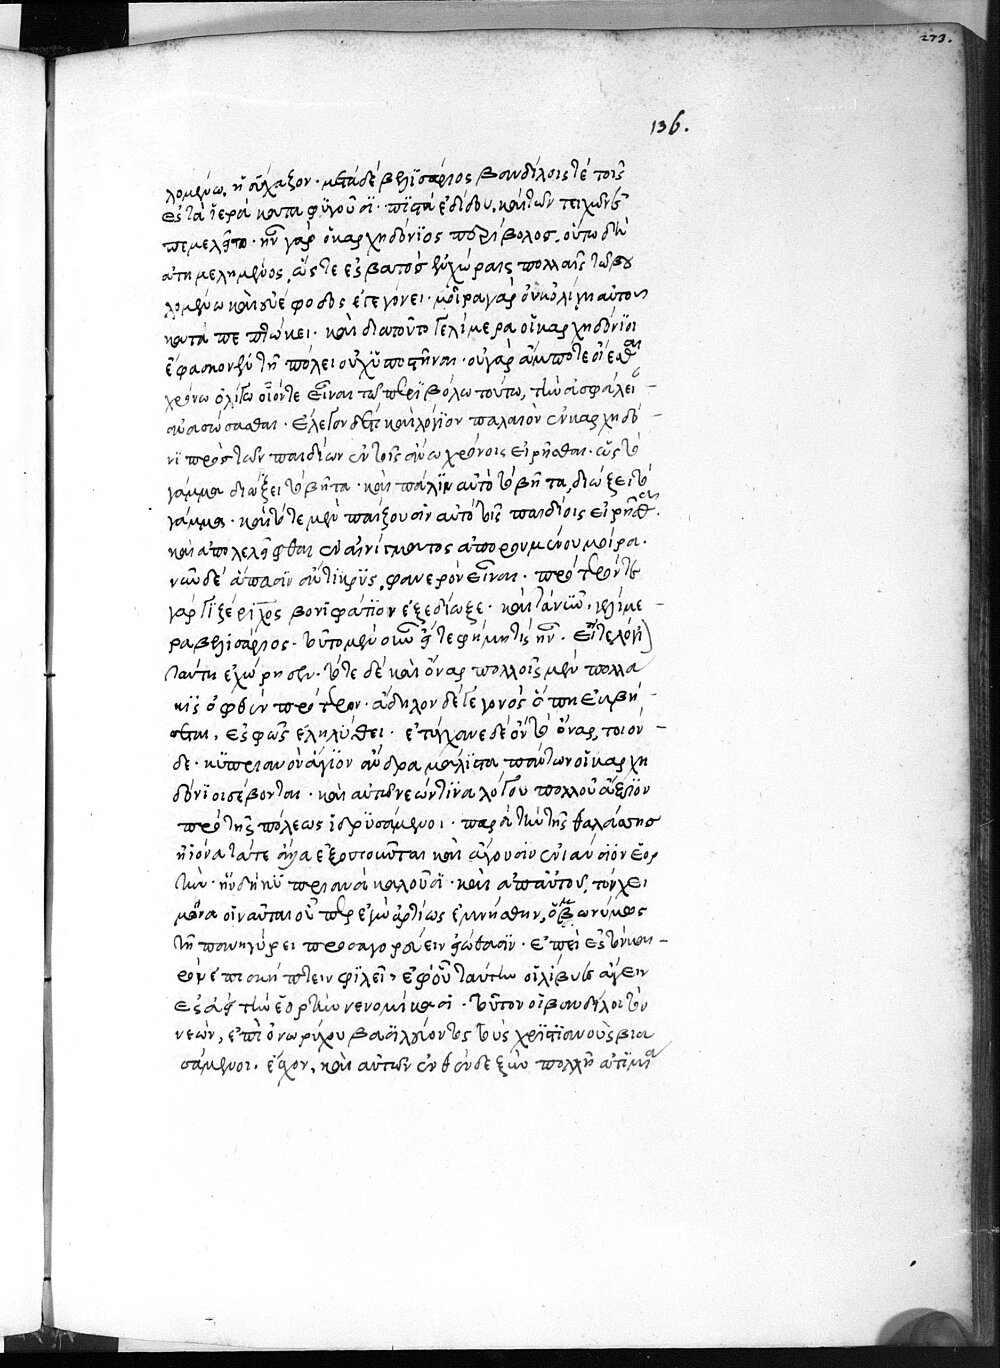 273.
136.
λομένω, ἡσύχαζον· μετὰ δὲ βελισάριος βανδίλοις τὲ τοῖς
ἐς τὰ ἱερὰ καταφυγοῦσι· πιστὰ ἐδίδου, καὶ τῶν τειχῶν ἐ
πεμελεῖτο· ἦν γὰρ ὁ καρχηδόνιος περίβολος, οὕτω δὴ
ἀπημελημένος, ὥστε ἐσβατὸς ἐν χώραις πολλαῖς τῶ βου
λομένω καὶ εὐέφοδος ἐγεγόνει· μοῖρα γὰρ οὐκ ὀλίγη αὐτοῦ
κατα πεπτώκει· καὶ διατοῦτο γελίμερα οἱ καρχηδόνιοι
ἔφασκον ἐν τῆ πόλει οὐχ ὑποστῆναι· οὐ γὰρ ἄμποτε οἴεσθαι
χρόνω ὀλίγω οἷόντε εἶναι τῶ περιβόλω τούτω, τὴν ἀσφάλει-
αν ἀνασώσασθαι· ἔλεγον δέ τι καὶ λόγιον παλαιὸν ἐν καρχηδό-
νι πρὸς τῶν παιδίων ἐν τοῖς ἄνω χρόνοις εἰρῆσθαι· ὡς τὸ
γάμμα διώξει τὸ βῆτα· καὶ πάλιν αὐτὸ τὸ βῆτα, διώξει τὸ
γάμμα· καὶ τότε μὲν παίζουσιν αὐτὸ τοῖς παιδίοις εἰρῆσθαι.
καὶ ἀπολελεῖφθαι ἐν αἰνίγματος ἀπορουμένου μοίρα·
νῦν δὲ ἅπασιν ἄντικρυς, φανερὸν εἶναι· πρότερόν τε
γὰρ γιζέριχος βονιφάτιον ἐξεδίωξε· καὶ τανῦν, γελίμε-
ρα βελισάριος· τοῦτο μὲν οὖν εἴτε φήμη τίς ἦν· εἴτε λόγι(ον)
ταύτη ἐχώρησεν· τότε δὲ καὶ ὄναρ πολλοῖς μὲν πολλά
κις ὀφθὲν πρότερον· ἄδηλον δὲ γεγονὸς ὅπη ἐκβή-
σεται, ἐς φῶς ἐληλύθει· ἐτύγχανε δὲ ὂν τὸ ὄναρ, τοιόν-
δε· κυπριανὸν ἅγιον ἄνδρα μάλιστα πάντων οἱ καρχη
δόνιοι σέβονται· καὶ αὐτῶ νεών τινα λόγου πολλοῦ ἄξιον
πρὸ τῆς πόλεως ἱδρυσάμενοι· παρὰ τὴν τῆς θαλάσσης
ἠιόνα τά τε ἄλλα ἐξοσιοῦνται καὶ ἄγουσιν ἐνιαύσιον ἑορ
τὴν· ἣν δὴ κυπριανὰ καλοῦσι· καὶ ἀπ' αὐτοῦ, τὸν χει
μῶνα οἱ ναῦται οὗ περ ἐγὼ ἀρτίως ἐμνήσθην, ὁμωνύμως
τῆ πανηγύρει προσαγορεύειν εἰώθασιν· ἐπεὶ ἐς τὸν και-
ρὸν ἐπισκήπτειν φιλεῖ, ἐφ' οὗ ταύτην οἱ λίβυες ἄγειν
ἐς ἀεὶ τὴν ἑορτὴν νενομίκασι· τοῦτον οἱ βανδίλοι τὸν
νεών, ἐπὶ ὀνωρίχου βασιλεύοντος τοὺς χριστιανοὺς βια
σάμενοι, ἔσχον, καὶ αὐτῶν ἐνθένδε ξὺν πολλῆ ἀτιμία